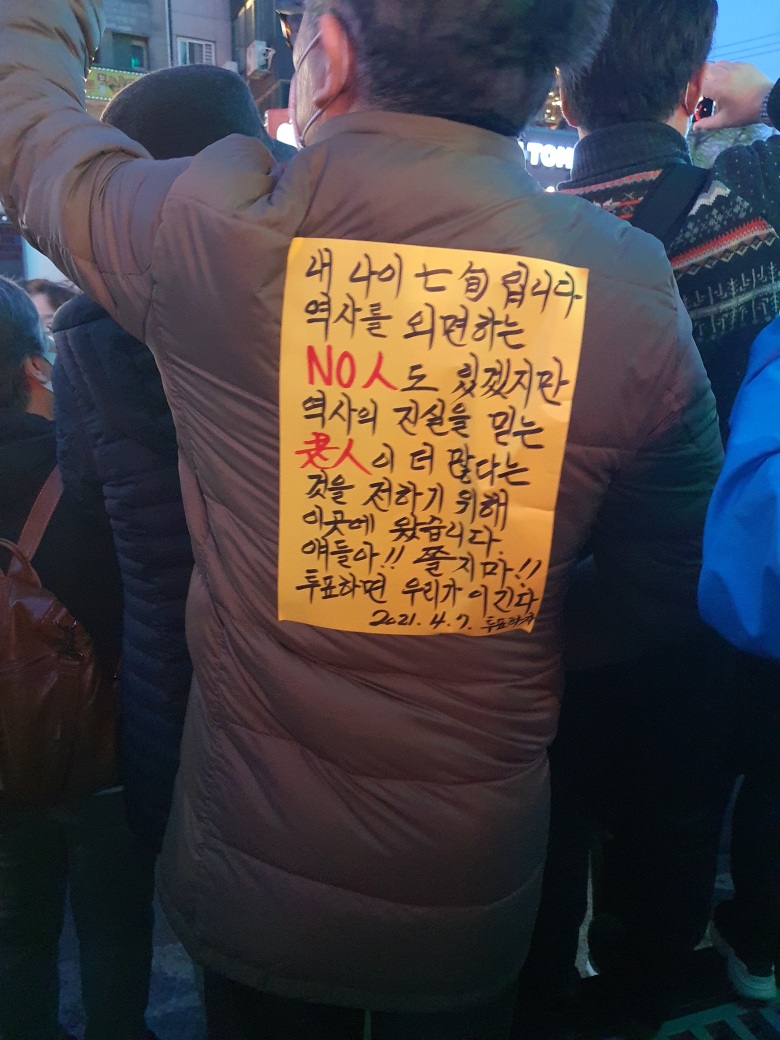 내 나이 七旬 입니다
역사를 외면하는
NO人도 있겠지만
역사의 진실을 믿는
老人이 더 많다는
것을 전하기 위해
이곳에 왔습니다.
얘들아!! 쫄지마!!
투표하면 우리가 이긴다
2021. 4. 7.
TOM